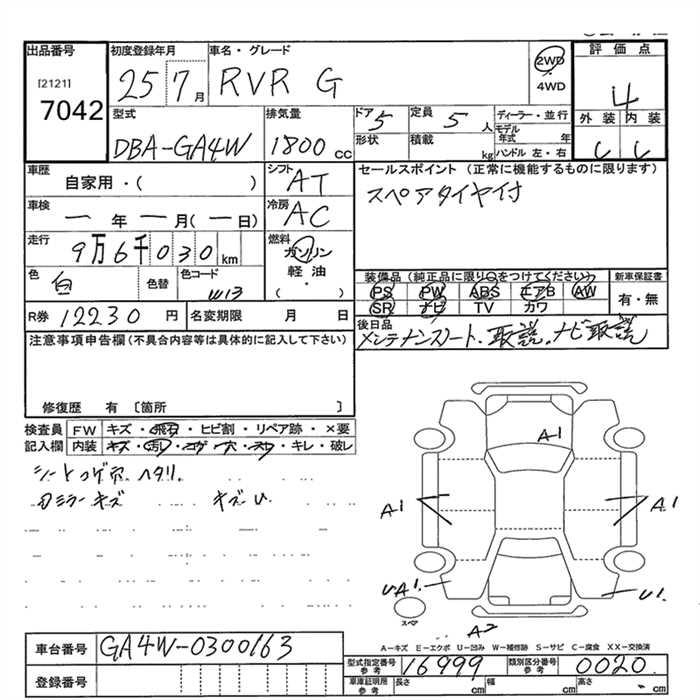 出品番号
[2121]
7042
初度登録年月
25 7月
車名・グレード
RVR G
2WD
・
4WD
評価点
4
外装 内装
C C
型式
DBA-GA4W
排気量
1800 cc
ドア 5
形状
定員 5 人
積載 kg
ディーラー・並行
モデル年式 年
ハンドル 左・右
車歴
自家用・( )
シフト
AT
セールスポイント (正常に機能するものに限ります)
スペアタイヤ付
車検
ー年ー月(ー日)
冷房
AC
走行
9万6千030km
燃料
ガソリン
軽油
・
( )
色
白
色替
色コード
W13
装備品(純正品に限り○をつけてください)
PS PW ABS エアB AW
SR ナビ TV カワ
新車保証書
有・無
R券 12230 円
名変期限 月 日
後日品
メンテナンスノート、取説、ナビ取説
注意事項申告欄(不具合内容等は具体的に記入して下さい)
修復歴 有 〔箇所 〕
検査員記入欄
FW キズ・飛石・ヒビ割・リペア跡・×要
内装 キズ・汚れ・コゲ・穴・スレ・キレ・破レ
シートコゲ穴、ヘタリ。
ミラーキズ キズU
A-1
A1
A1
UA1
U1
スペア
A2
A-キズ E-エクボ U-凹み W-補修跡 S-サビ C-腐食 XX-交換済
車台番号
GA4W-0300163
登録番号
型式指定番号
参考
16999
類別区分番号
参考
0020
車庫証明用
参考
長さ cm
幅 cm
高さ cm